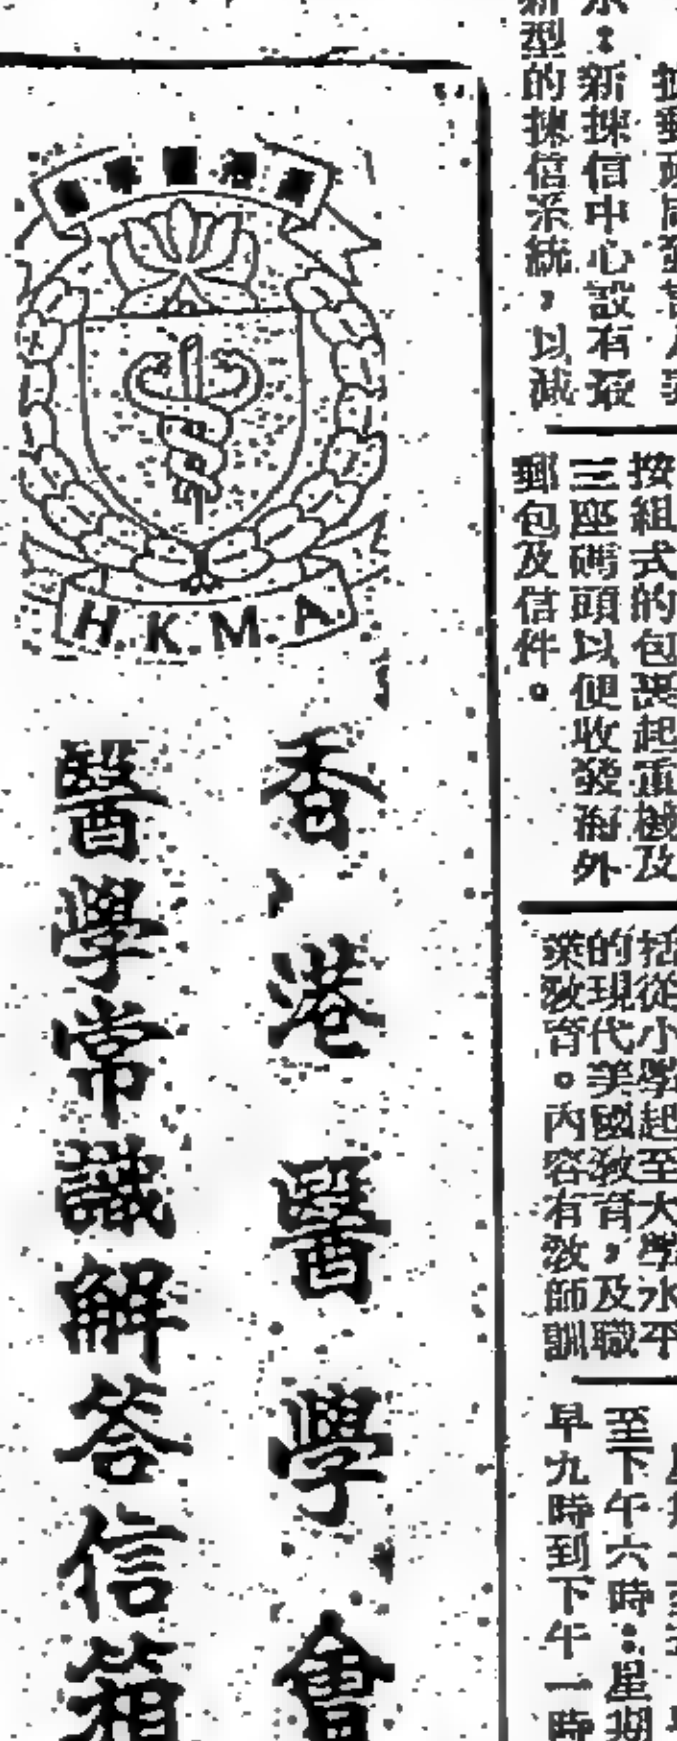 H.K.M.A.
香港醫學會
醫學常識解答信箱
水：新揀信中心設有最
新型的揀信系統，以減
按組式的包裹起重機及
三座碼頭以便收發海外
郵包及信件。
括從小學起至大學水平
的現代美國教育，及職
業教育。內容有教師訓
至下午六時：星期
早九時到下午一時